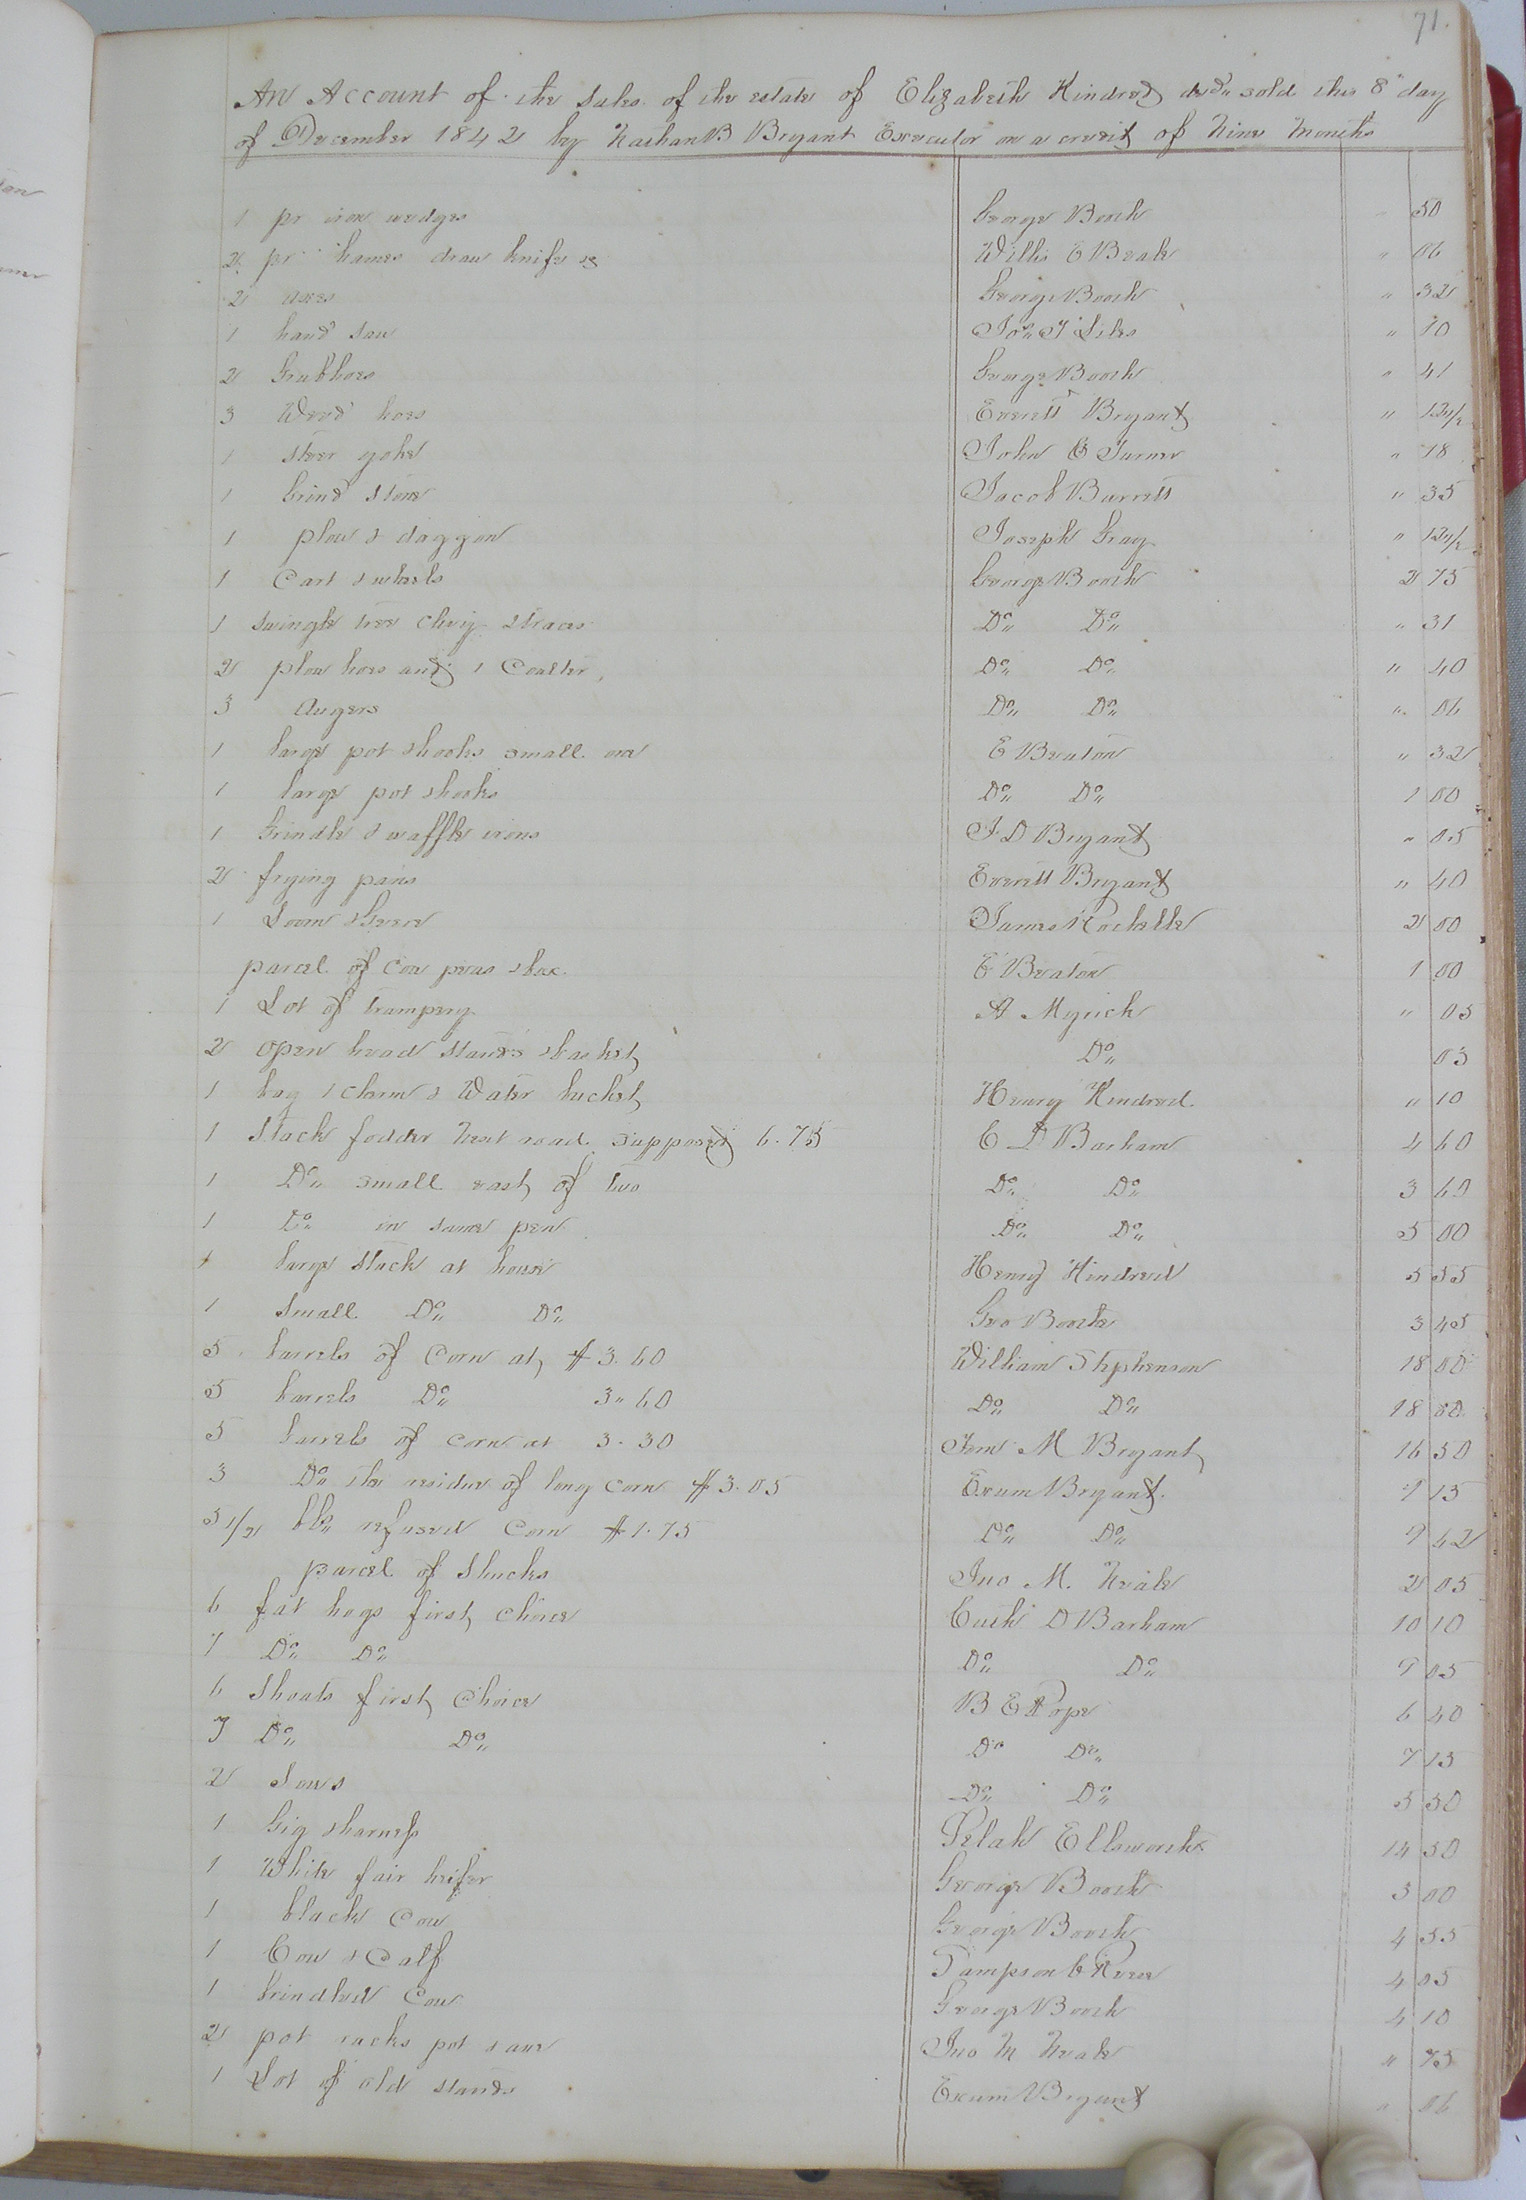 71.
An Account of the Sales of the estate of Elizabeth Kindred decd sold this 8th day
of December 1842 by Nathan B Bryant Executor on a credit of Nine Months
1 pr iron wedges George Booth " 50
2 pr hames draw knife &c Willis E Beale " 06
2 axes George Booth " 32
1 hand saw Jos. T Liles " 10
2 Grubhoes George Booth " 41
3 Weed hoes Everitt Bryant " 12 1/2
1 steer yoke John E Turner " 18
1 Grind stone Jacob Barrett " 35
1 plow & daggon Joseph Gray " 12 1/2
1 Cart & wheels George Booth 2 75
1 swingle tree clevy & traces Do Do " 31
2 plow hoes and 1 Coalter Do Do " 40
3 Augers Do Do " 06
1 large pot & hooks small one E Beaton " 32
1 large pot & hooks Do Do 1 00
1 Grindle & waffle irons J D Bryant " 05
2 frying pans Everitt Bryant " 40
1 Loom & Geer James Rochelle 2 00
parcel of Cow peas & box E Beaton 1 00
1 Lot of trumpery A Myrick " 05
2 open head stands & basket Do 05
1 keg 1 churn & Water bucket Henry Kindred " 10
1 Stack fodder next road supposed 6.75 C D Barham 4 60
1 Do small east of two Do Do 3 60
1 Do in same pen Do Do 5 00
1 large Stack at house Henry Kindred 5 55
1 Small Do Do Geo Booth 3 45
5 barrels of Corn at $3.60 William Stephenson 18 00
5 barrels Do 3.60 Do Do 18 00
5 barrels of corn at 3.30 M Bryant 16 50
3 Do the residue of long corn $3.05 Exum Bryant 9 15
5 1/2 bbs refused Corn $1.75 Do Do 9 62
parcel of Shucks Jno M. Neale 2 05
6 fat hogs first choice D Barham 10 10
7 Do Do Do Do 9 05
6 Shoats first Choice B E Pope 6 40
7 Do Do Do Do 7 15
2 Sows Do Do 5 50
1 Gig & harness Pelah Ellsworth 14 50
1 White fair heifer George Booth 3 00
1 black Cow George Booth 4 55
1 Cow & Calf 4 05
1 brindled Cow George Booth 4 10
2 pot racks pot & Jno M Neale " 75
1 Lot of old stands Exum Bryant " 06